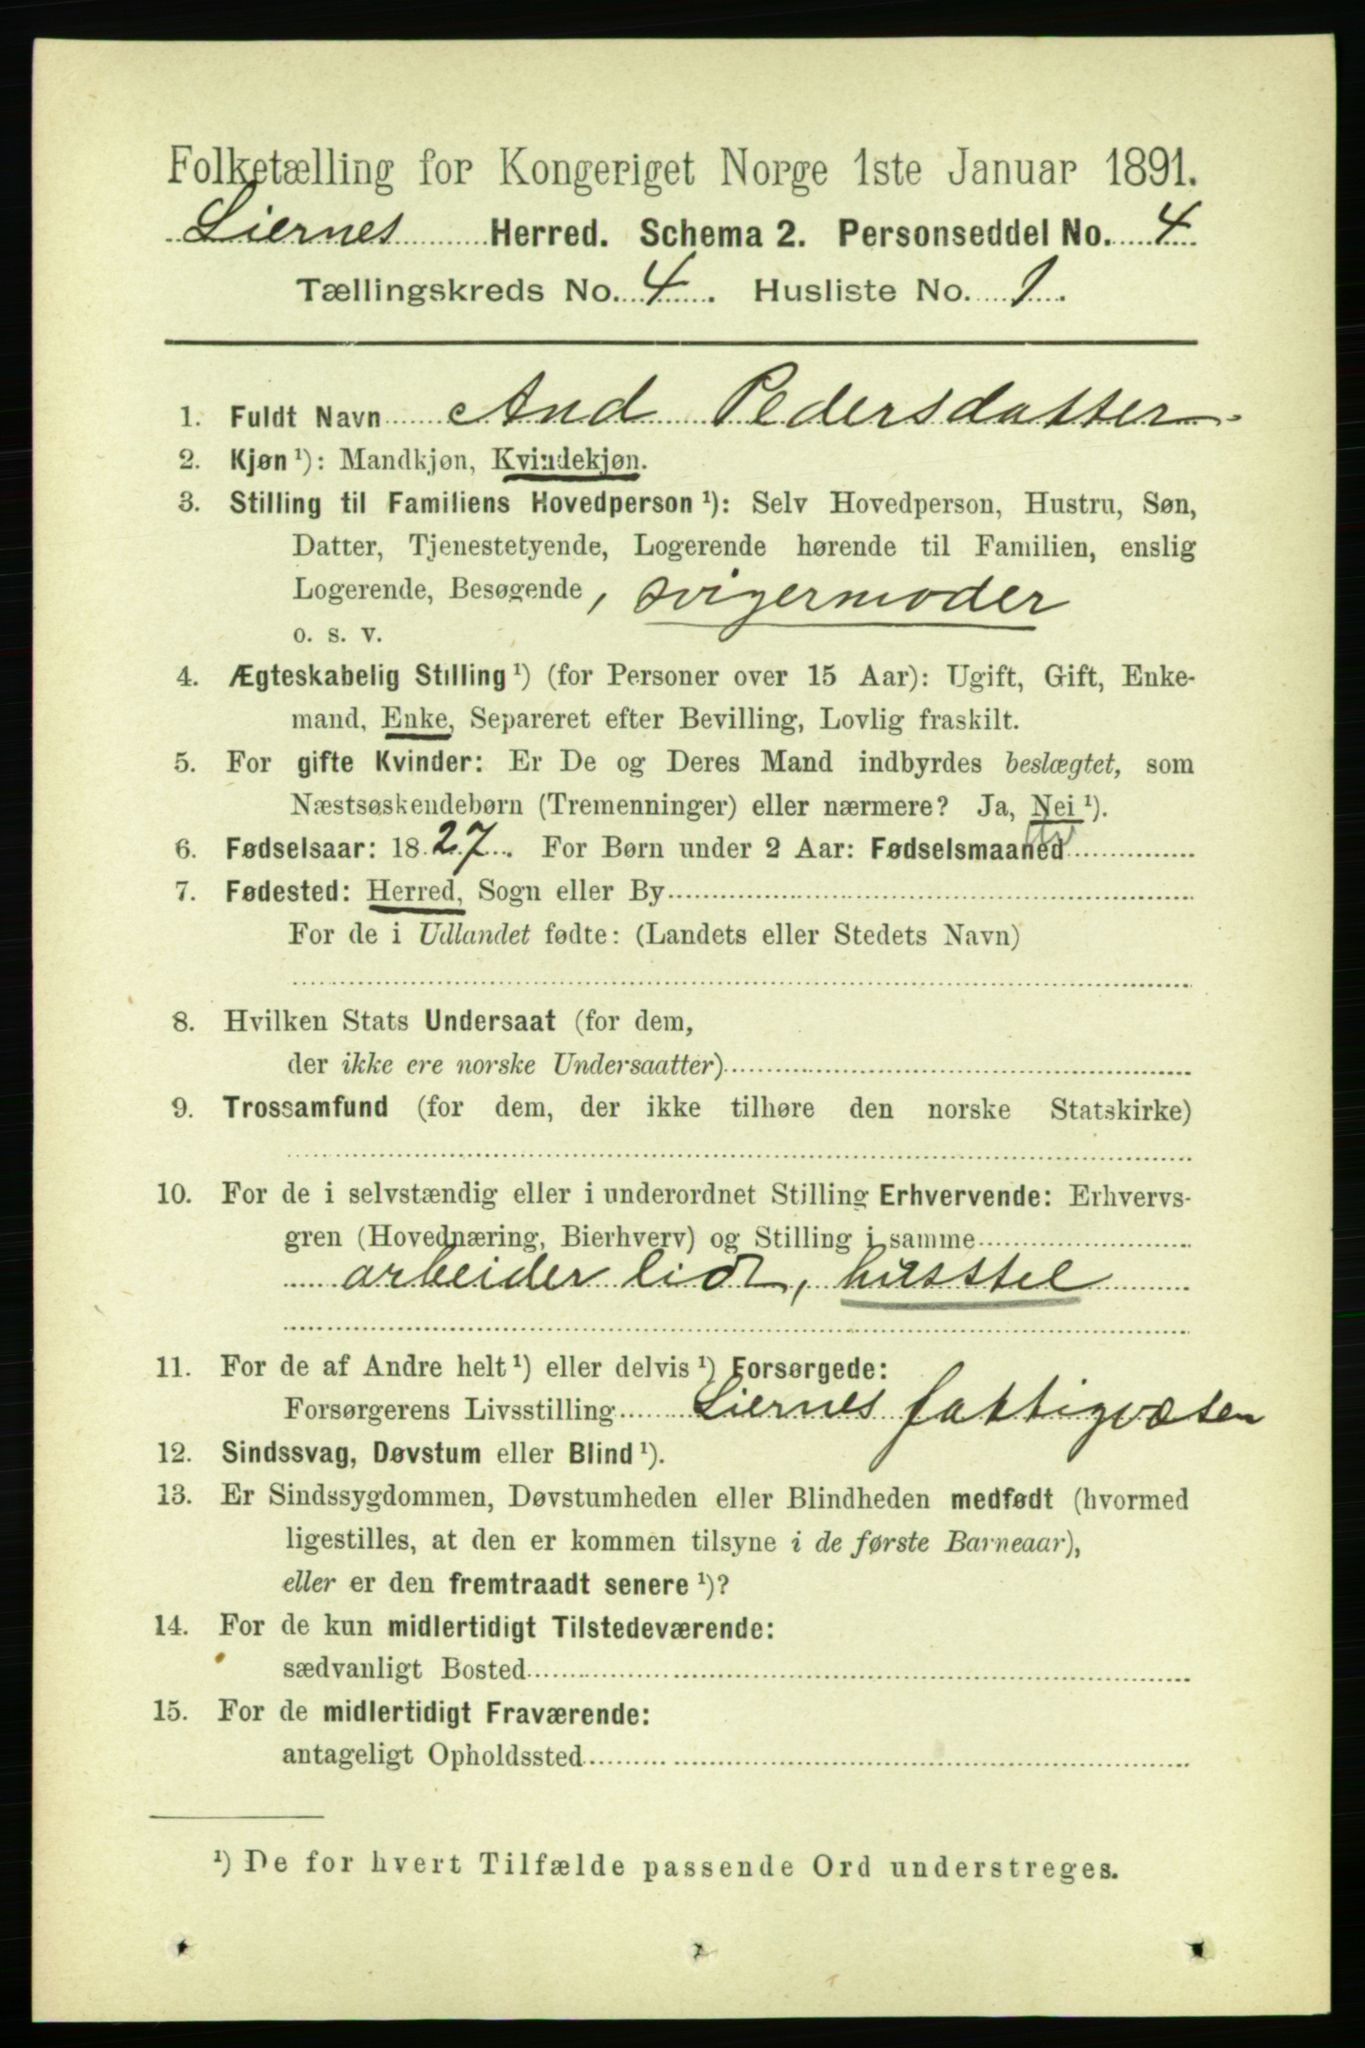 Folketælling for Kongeriget Norge 1ste Januar 1891.
Liernes Herred. Schema 2. Personseddel No. 4
Tællingskreds No. 4. Husliste No. 1.
1. Fuldt Navn And Pedersdatter
2. Kjøn ¹): Mandkjøn, Kvindekjøn.
3. Stilling til Familiens Hovedperson ¹): Selv Hovedperson, Hustru, Søn,
Datter, Tjenestetyende, Logerende hørende til Familien, enslig
Logerende, Besøgende, svigermoder
o. s. v.
4. Ægteskabelig Stilling ¹) (for Personer over 15 Aar): Ugift, Gift, Enke-
mand, Enke, Separeret efter Bevilling, Lovlig fraskilt.
5. For gifte Kvinder: Er De og Deres Mand indbyrdes beslægtet, som
Næstsøskendebørn (Tremenninger) eller nærmere? Ja, Nei ¹).
6. Fødselsaar: 1827. For Børn under 2 Aar: Fødselsmaaned
7. Fødested: Herred, Sogn eller By
For de i Udlandet fødte: (Landets eller Stedets Navn)
8. Hvilken Stats Undersaat (for dem,
der ikke ere norske Undersaatter)
9. Trossamfund (for dem, der ikke tilhøre den norske Statskirke)
10. For de i selvstændig eller i underordnet Stilling Erhvervende: Erhvervs-
gren (Hovednæring, Bierhverv) og Stilling i samme
arbeider lidt, husstel
11. For de af Andre helt ¹) eller delvis ¹) Forsørgede:
Forsørgerens Livsstilling Liernes fattigvæsen
12. Sindssvag, Døvstum eller Blind ¹).
13. Er Sindssygdommen, Døvstumheden eller Blindheden medfødt (hvormed
ligestilles, at den er kommen tilsyne i de første Barneaar),
eller er den fremtraadt senere ¹)?
14. For de kun midlertidigt Tilstedeværende:
sædvanligt Bosted
15. For de midlertidigt Fraværende:
antageligt Opholdssted
¹) De for hvert Tilfælde passende Ord understreges.